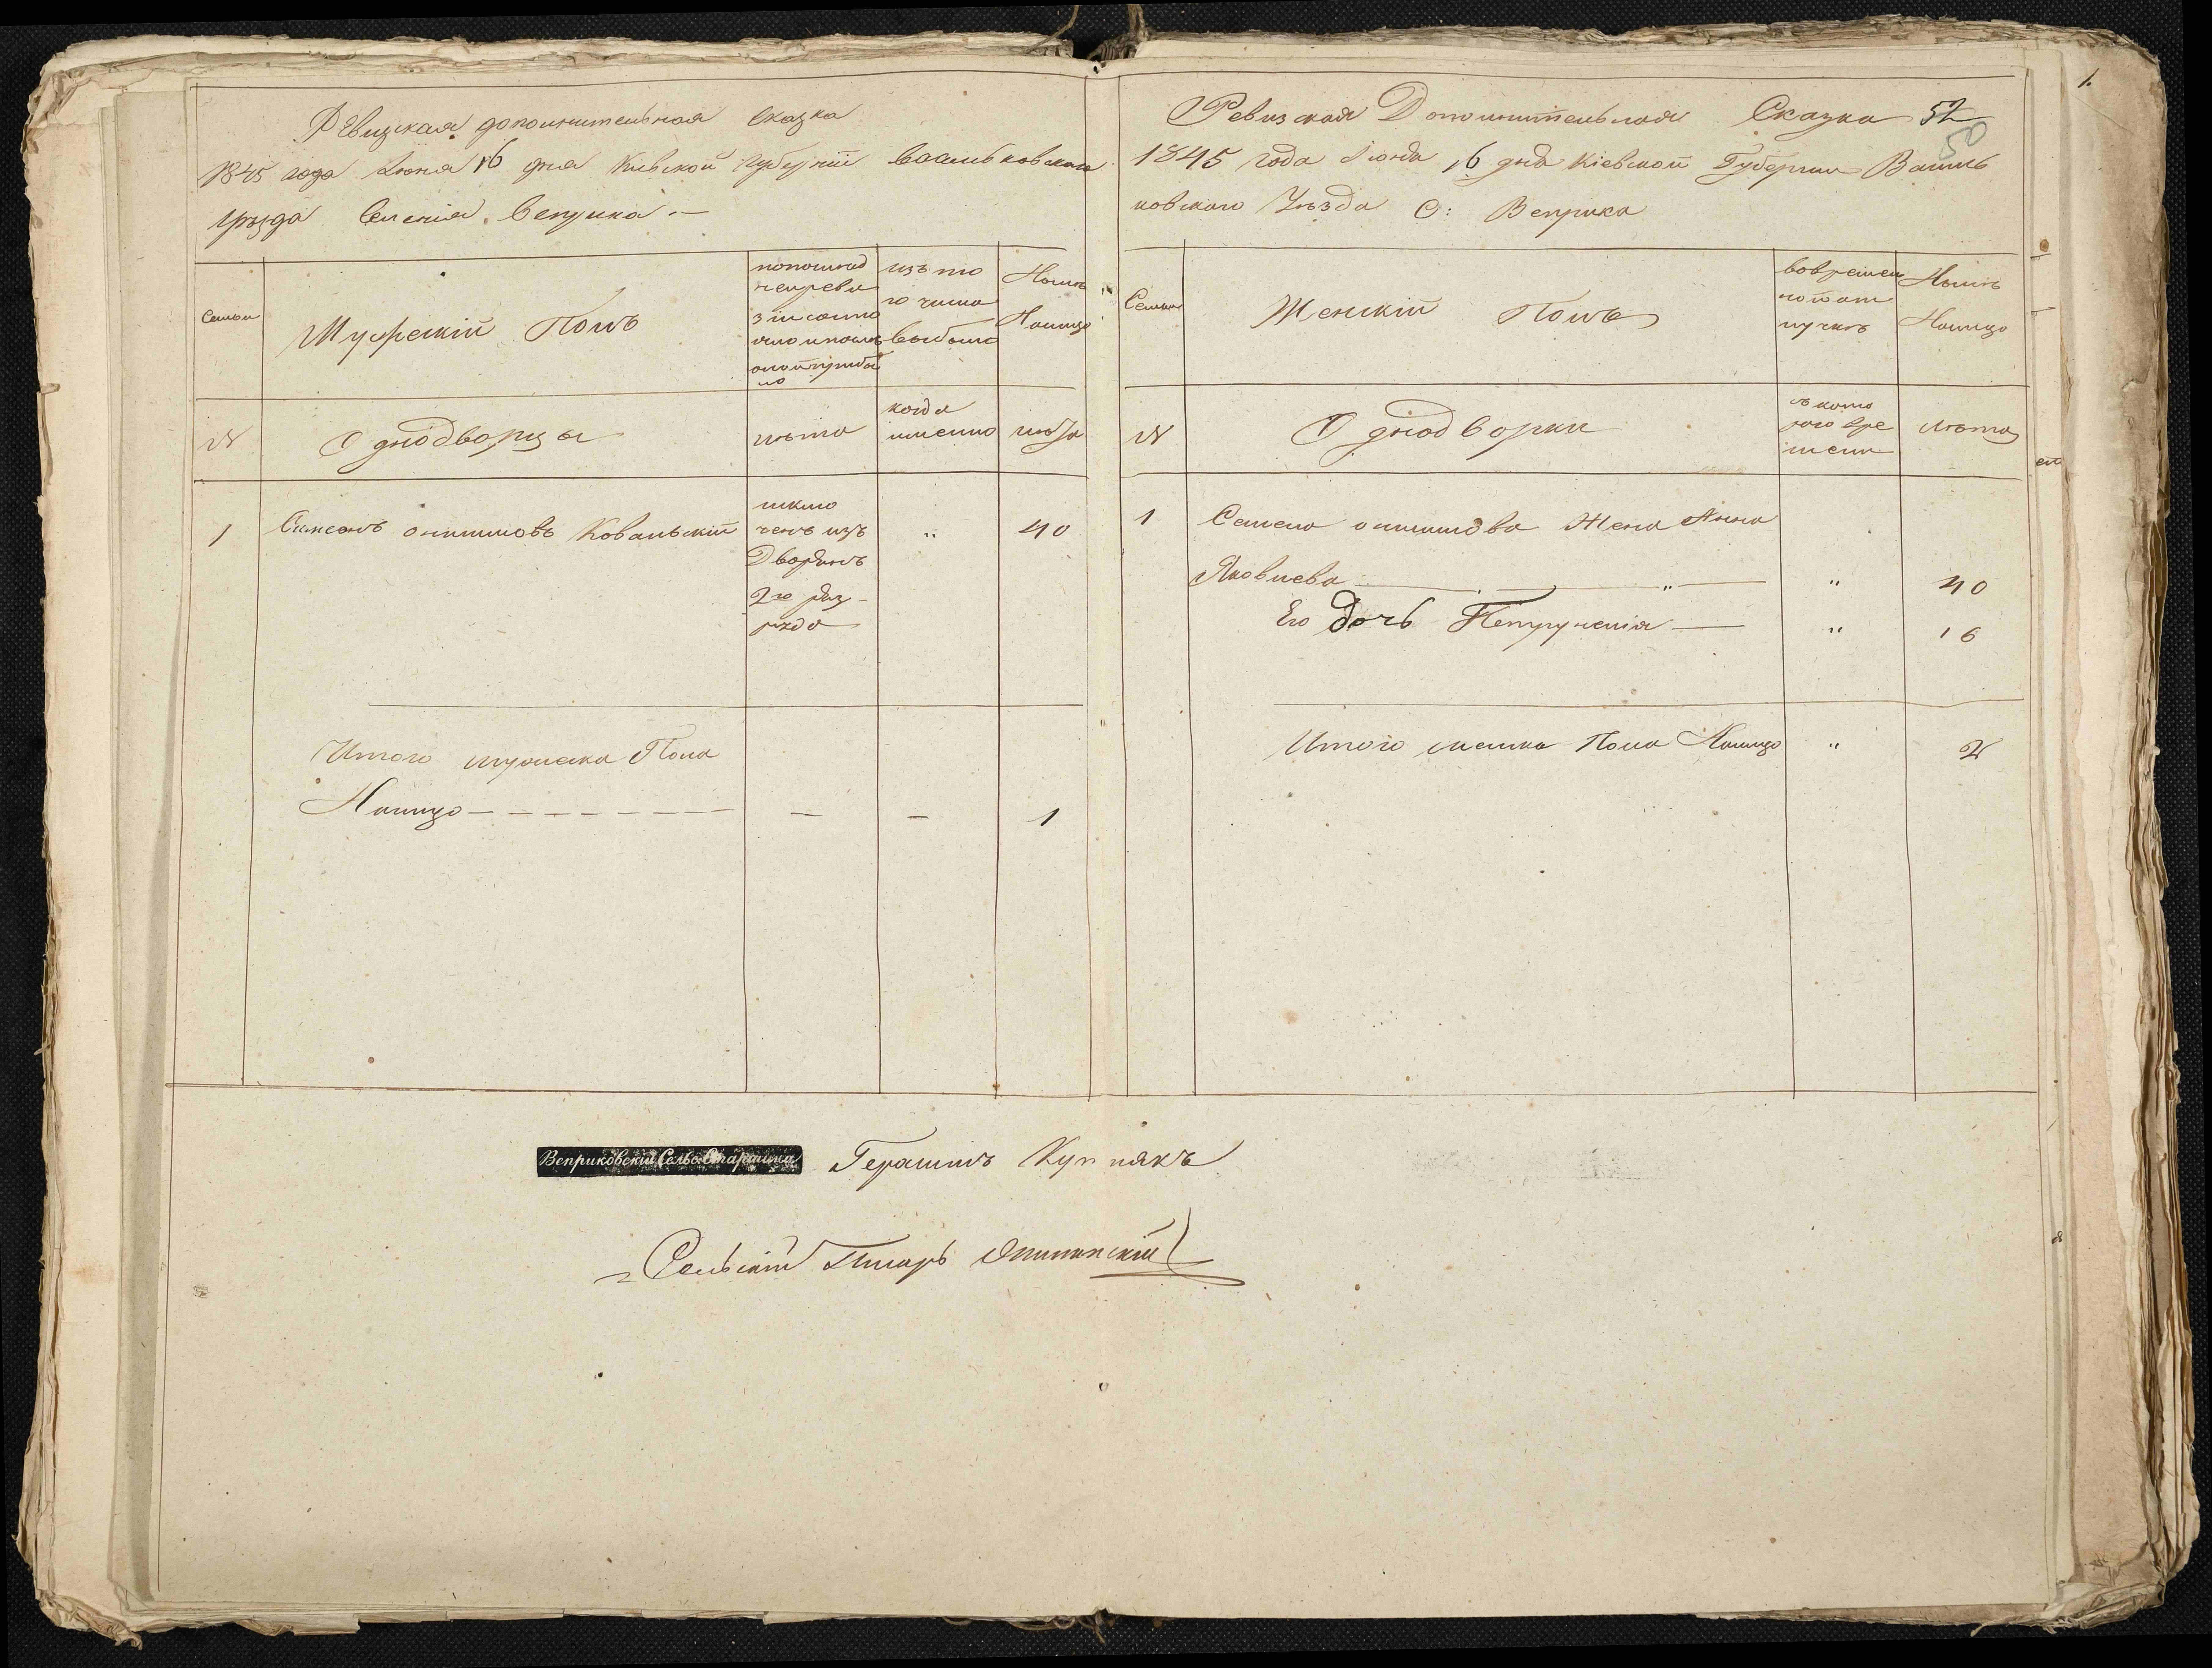 Ревизская дополнительная сказка
1845 года Июня 16 дня Киевской губернии Васильковскаго
уѣзда Селенія Веприка
Семьи
Мужескій Полъ
по последней ревизіи состояло и после оной прибыло
изъ того числа выбыло
Нынѣ На лицо
№
Однодворцы
лѣта
когда именно
лѣта
1
Симеонъ онишковъ Ковальскій
исключенъ изъ Дворянъ 2го разряда
"
40
Итого мужеска Пола
На лицо
1
Ревизская Дополнительная Сказка 52
50
1845 года Іюня 16 дня Кіевской Губернии Василь
ковского Уѣзда С: Веприка
Семьи
Женскій Полъ
во временной отлучкѣ
Нынѣ На лицо
№
Однодворки
съ которого времени
Лѣта
1
Семена Жена Анна
Яковлева " " 40
Его дочь " 16
Итого женска Пола На лицо " 2
Веприковскій Сельс. Старшина
Герасимъ
Сельскій Писарь
1.